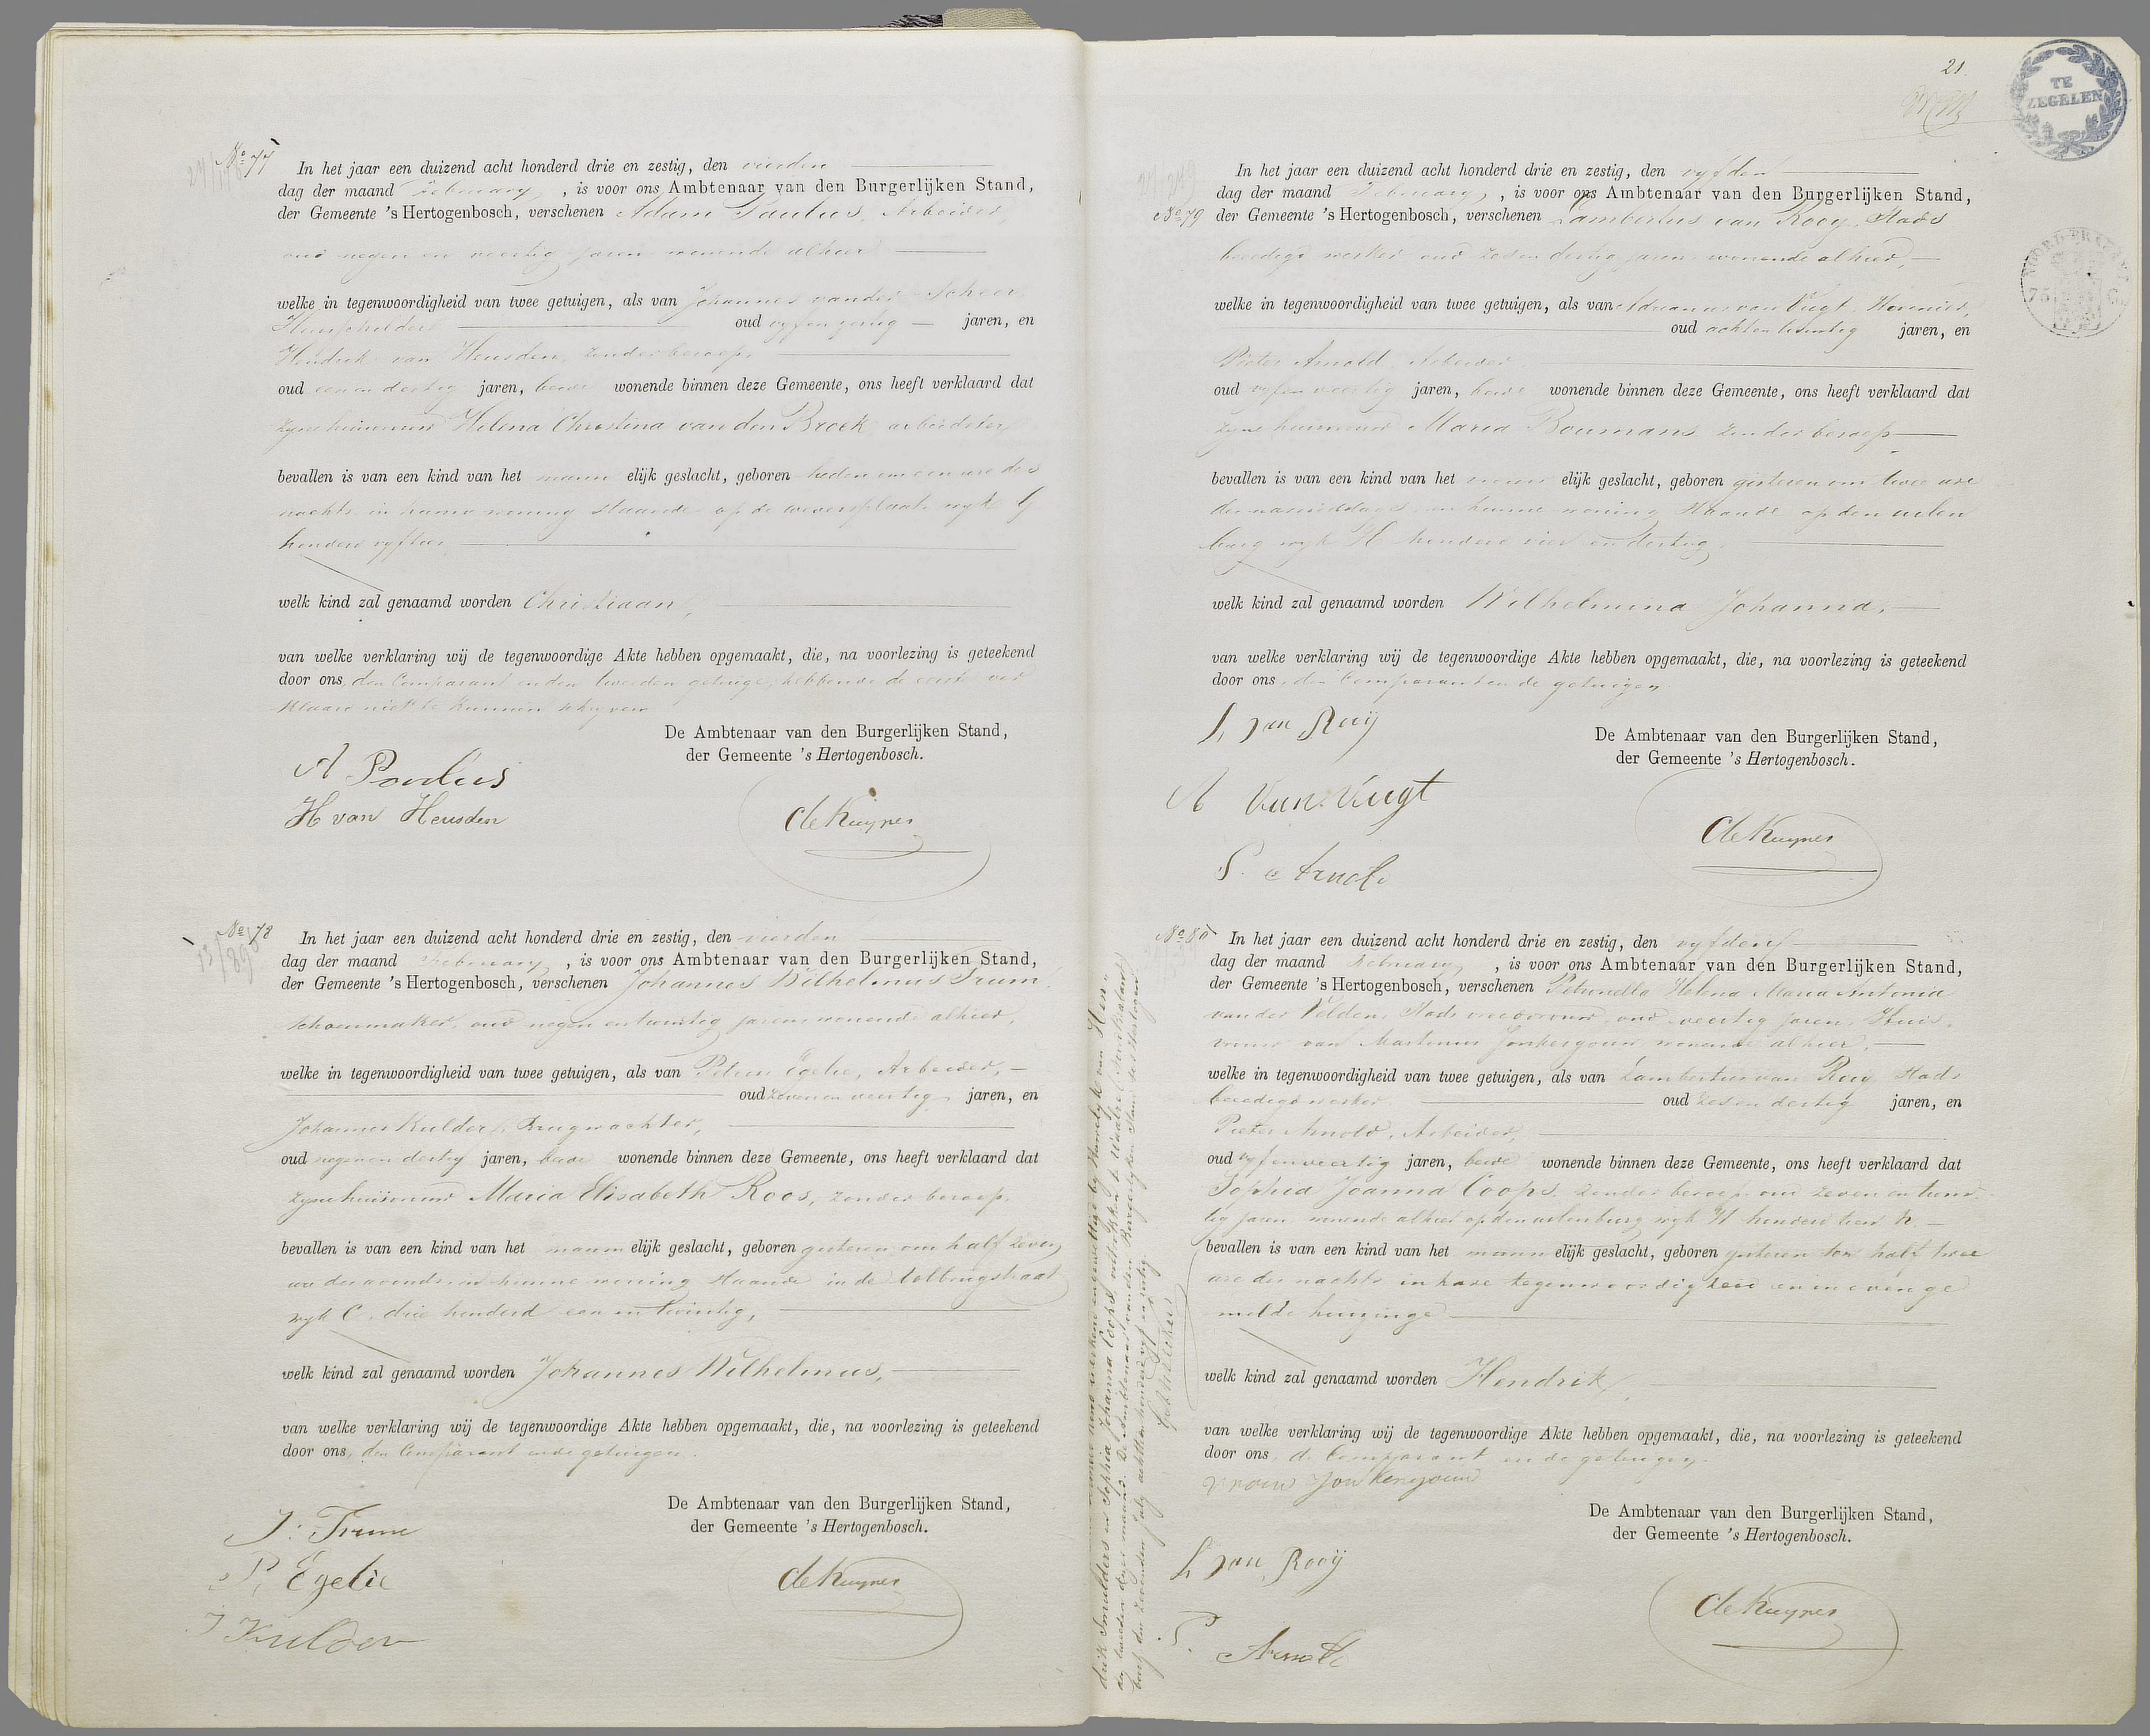 No 77
In het jaar een duizend acht honderd drie en zestig, den vierden
dag der maand February, is voor ons Ambtenaar van den Burgerlijken Stand,
der Gemeente 's Hertogenbosch, verschenen Adam Paulus, Arbeider,
oud negen en veertig jaren wonende alhier
welke in tegenwoordigheid van twee getuigen, als van Johannes vander Scheer
Huisschilder oud vyf en zestig jaren, en
Hendrik van Heusden, zonder beroep,
oud een en dertig jaren, beide wonende binnen deze Gemeente, ons heeft verklaard dat
zyne huisvrouw Helena Christina van den Broek arbeidster
bevallen is van een kind van het mann elijk geslacht, geboren heden om een ure des
nachts in hunne woning staande op de weversplaats wyk G
honderd vyftien
welk kind zal genaamd worden Christiaan,
van welke verklaring wij de tegenwoordige Akte hebben opgemaakt, die, na voorlezing is geteekend
door ons, den Comparant en den tweeden getuige, hebbende de eerste ver
klaard niet te kunnen schryven
De Ambtenaar van den Burgerlijken Stand,
der Gemeente 's Hertogenbosch.
A Paulus
H van Heusden
de Kuyper
No 78
In het jaar een duizend acht honderd drie en zestig, den vierden
dag der maand February, is voor ons Ambtenaar van den Burgerlijken Stand,
der Gemeente 's Hertogenbosch, verschenen Johannes Wilhelmus Trum,
schoenmaker, oud negen en twintig jaren wonende alhier,
welke in tegenwoordigheid van twee getuigen, als van Petrus Egelie, Arbeider,
oud zeven en veertig jaren, en
Johannes Kulder, Brugwachter,
oud negen en dertig jaren, beide wonende binnen deze Gemeente, ons heeft verklaard dat
zyne huisvrouw Maria Elisabeth Roos, zonder beroep,
bevallen is van een kind van het mann elijk geslacht, geboren gisteren om half zeven
ure des avonds in hunne woning staande in de tolbrugstraat
wyk C. drie honderd een en twintig,
welk kind zal genaamd worden Johannes Wilhelmus,
van welke verklaring wij de tegenwoordige Akte hebben opgemaakt, die, na voorlezing is geteekend
door ons, den Comparant en de getuigen.
De Ambtenaar van den Burgerlijken Stand,
der Gemeente 's Hertogenbosch.
J. Trum
P. Egelie
J Kulder
de Kuyper
21.
TE
ZEGELEN
No 79
In het jaar een duizend acht honderd drie en zestig, den vyfden
dag der maand February, is voor ons Ambtenaar van den Burgerlijken Stand,
der Gemeente 's Hertogenbosch, verschenen Lambertus van Rooy, Stads
beeedigd werker oud zes en dertig jaren wonende alhier,
welke in tegenwoordigheid van twee getuigen, als van Adrianus van Vugt, Hovenier,
oud acht en twintig jaren, en
Pieter Arnold, Arbeider
oud vyf en veertig jaren, beide wonende binnen deze Gemeente, ons heeft verklaard dat
zyne huisvrouw Maria Boumans zonder beroep
bevallen is van een kind van het vrouw elijk geslacht, geboren gisteren om twee ure
des namiddags, in hunne woning staande op den uilen
burg wyk H honderd vier en dertig,
welk kind zal genaamd worden Wilhelmina Johanna,
van welke verklaring wij de tegenwoordige Akte hebben opgemaakt, die, na voorlezing is geteekend
door ons, den Comparant en de getuigen
De Ambtenaar van den Burgerlijken Stand,
der Gemeente 's Hertogenbosch.
L van Rooij
A Van Vugt
P. Arnold
de Kuyper
No 80
In het jaar een duizend acht honderd drie en zestig, den vyfden
dag der maand February, is voor ons Ambtenaar van den Burgerlijken Stand,
der Gemeente 's Hertogenbosch, verschenen Petronella Helena Maria Antonia
van der Velden, Stads vroedvrouw, oud veertig jaren, Huis
vrouw van Martinus Jonkergouw wonende alhier,
welke in tegenwoordigheid van twee getuigen, als van Lambertus van Rooy Stads
beeedigd werker oud zes en dertig jaren, en
Pieter Arnold, Arbeider,
oud vyf en veertig jaren, beide wonende binnen deze Gemeente, ons heeft verklaard dat
Sophia Joanna Coops, zonder beroep oud zeven en twin
tig jaren wonende alhier op den uilenburg wyk H honderd
bevallen is van een kind van het mann elijk geslacht, geboren gisteren ten half twee
ure des nachts in hare tegenwoordigheid en in even ge
melde huizinge
welk kind zal genaamd worden Hendrik,
van welke verklaring wij de tegenwoordige Akte hebben opgemaakt, die, na voorlezing is geteekend
door ons, de Comparant en de getuigen.
vrouw Jonkergouw
De Ambtenaar van den Burgerlijken Stand,
der Gemeente 's Hertogenbosch.
L van Rooij
P. Arnold
de Kuyper
erkend en gewettigd by Huwelyk van Hen
drik Smulders en Sophia Johanna Coops